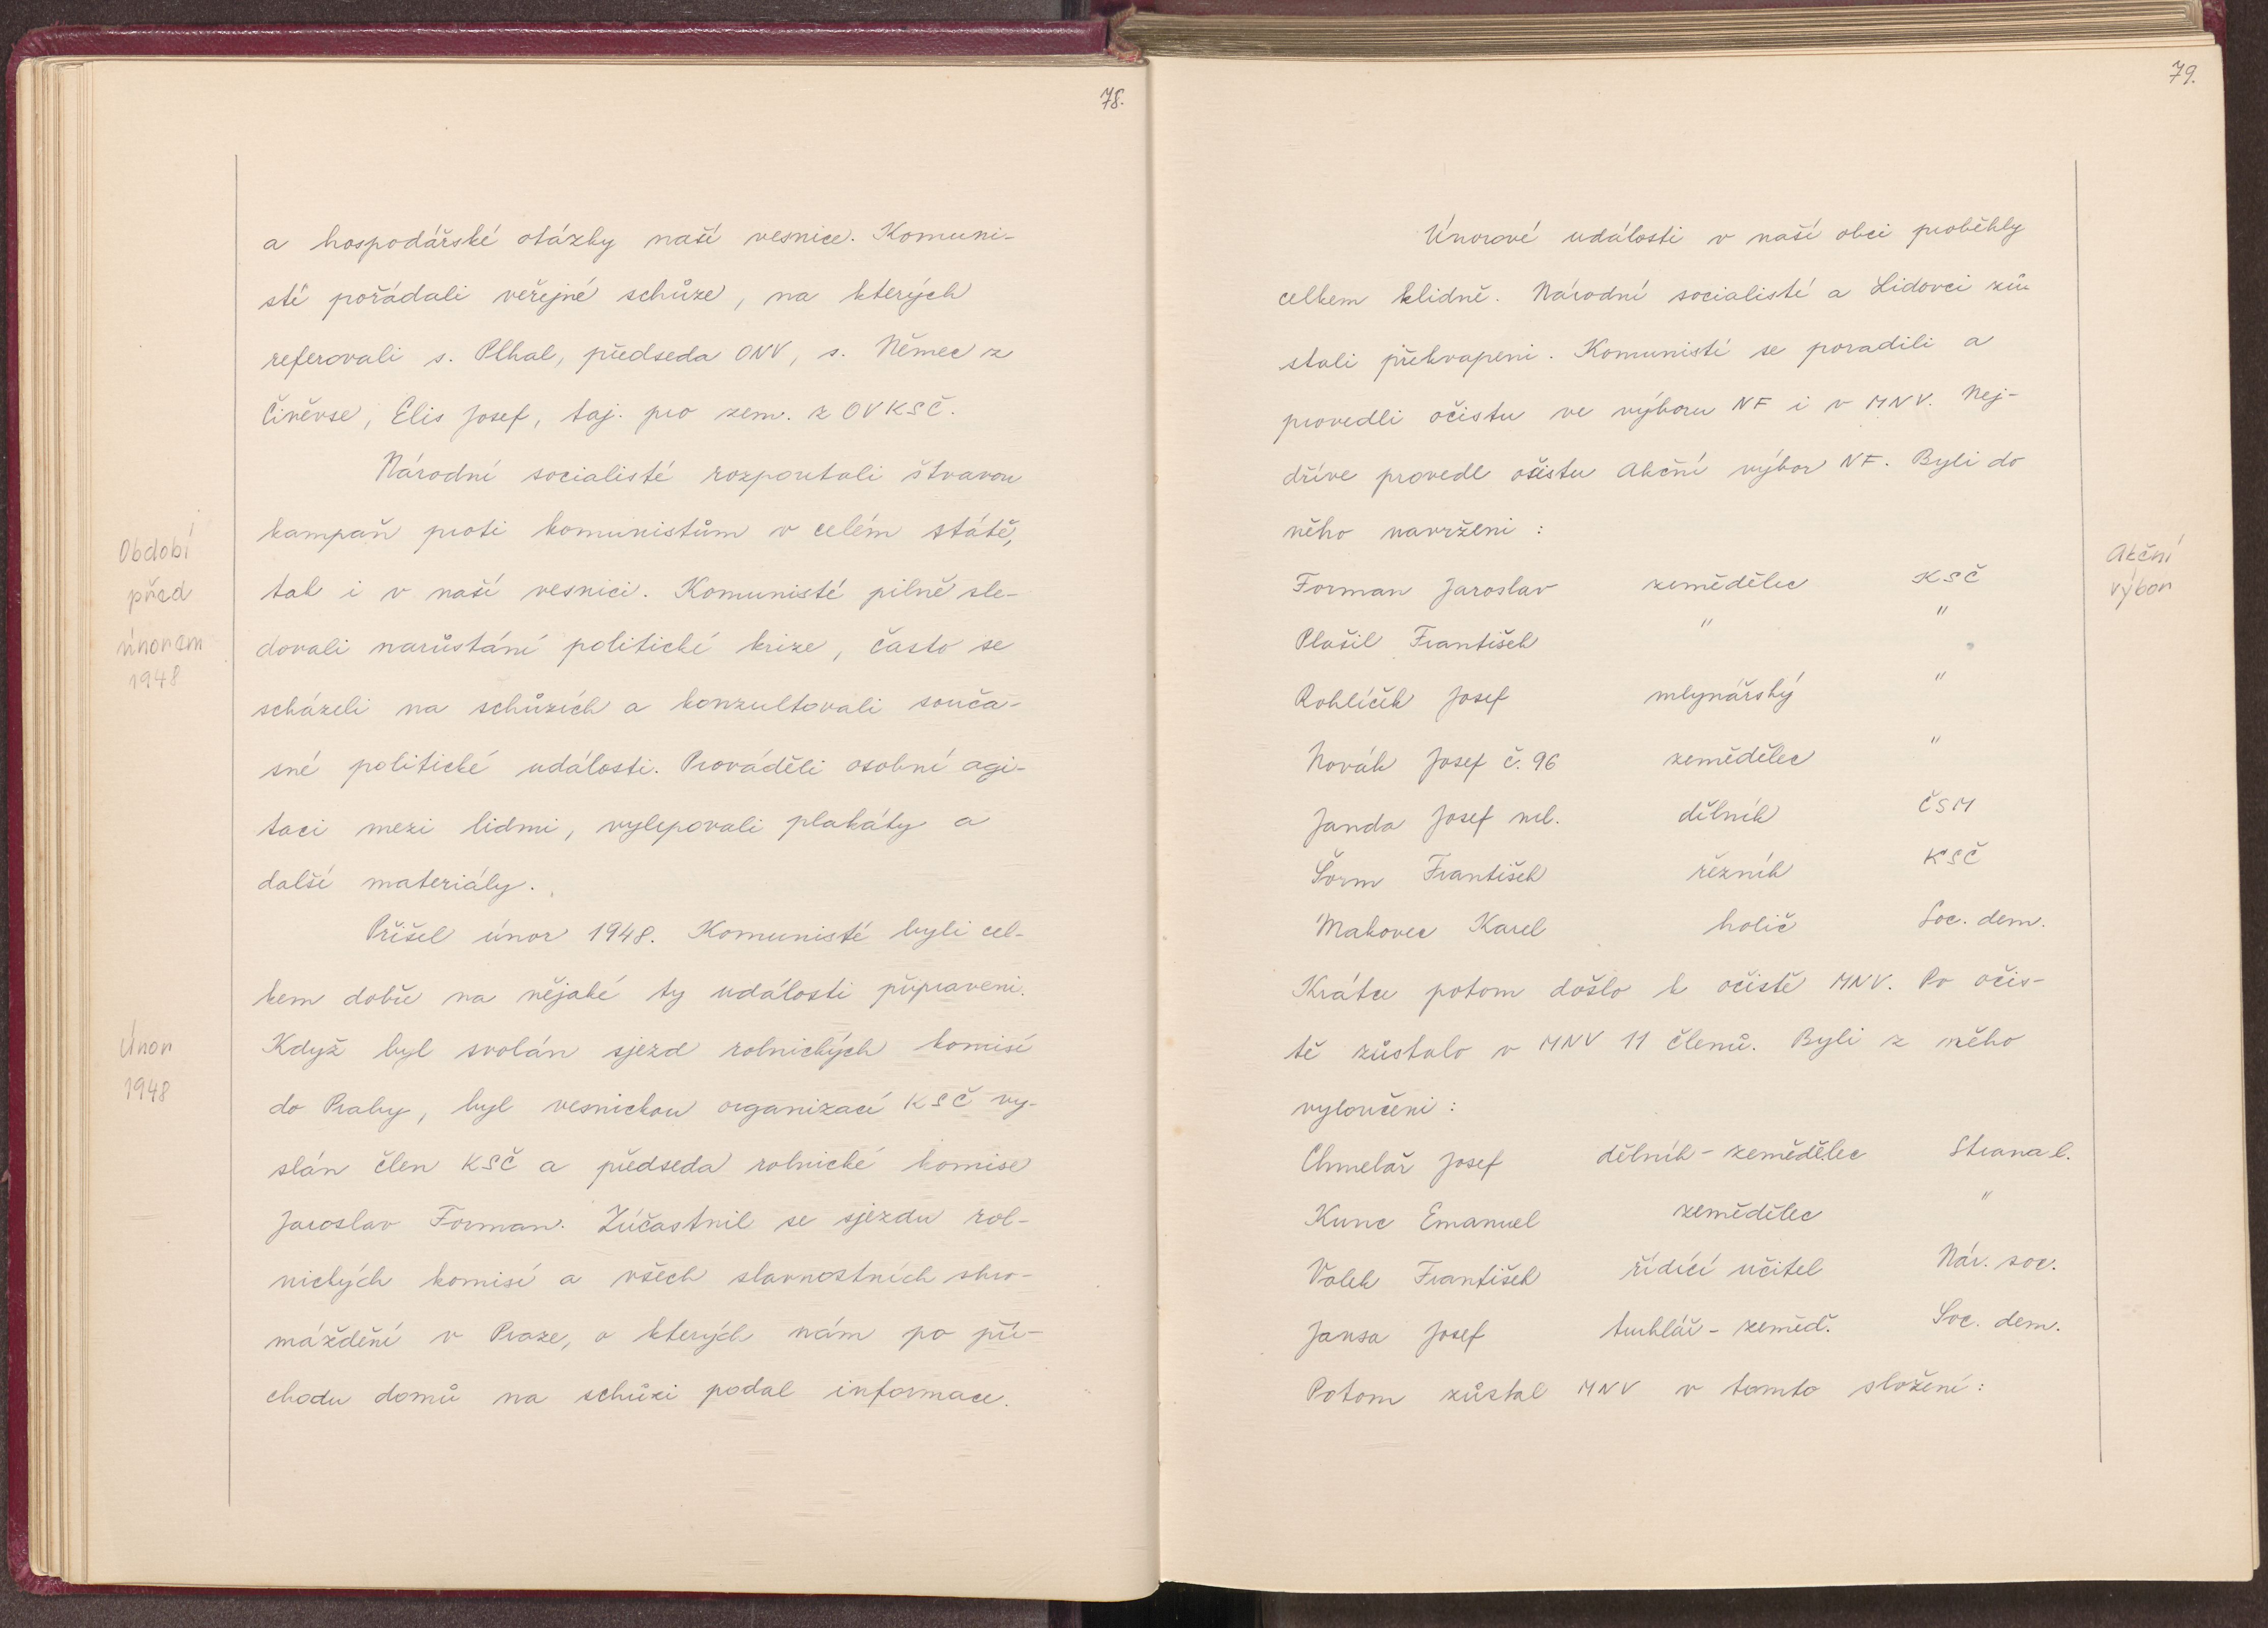 78.
a hospodářské otázky naší vesnice. Komuni-
sté pořádali veřejné schůze, na kterých
referovali s. Plhal, předseda ONV, s. Němec z
Činěvse, Elis Josef, taj. pro zem. z OVKSČ.
Národní socialisté rozpoutali štvavou
kampaň proti komunistům v celém státě,
Období
před
únorem
1948
tak i v naší vesnici. Komunisté pilně sle-
dovali narůstání politické krize, často se
scházeli na schůzích a konzultovali souča-
sné politické události. Prováděli osobní agi-
taci mezi lidmi, vylepovali plakáty a
další materiály.
Přišel únor 1948. Komunisté byli cel-
kem dobře na nějaké ty události připraveni.
Únor
1948
Když byl svolán sjezd rolnických komisí
do Prahy, byl vesnickou organizací KSČ vy-
slán člen KSČ a předseda rolnické komise
Jaroslav Forman. Zúčastnil se sjezdu rol-
nických komisí a všech slavnostních shro-
máždění v Praze, o kterých nám po pří-
chodu domů na schůzi podal informace.
79.
Únorové události v naší obci proběhly
celkem klidně. Národní socialisté a Lidovci zů-
stali překvapeni. Komunisté se poradili a
provedli očistu ve výboru NF i v MNV. Nej-
dříve provedl očistu Akční výbor NF. Byli do
něho navrženi :
Akční
výbor
Forman Jaroslav zemědělec KSČ
Plašil František " "
Rohlíček Josef mlynářský "
Novák Josef č. 96 zemědělec "
Janda Josef ml. dělník ČSM
Šorm František řezník KSČ
Makovec Karel holič Soc. dem.
Krátce potom došlo k očistě MNV. Po očis-
tě zůstalo v MNV 11 členů. Byli z něho
vyloučeni :
Chmelař Josef dělník - zemědělec Strana l.
Kunc Emanuel zemědělec "
Volek František řídící učitel Nár. soc.
Jansa Josef truhlář - zeměd. Soc. dem.
Potom zůstal MNV v tomto složení :